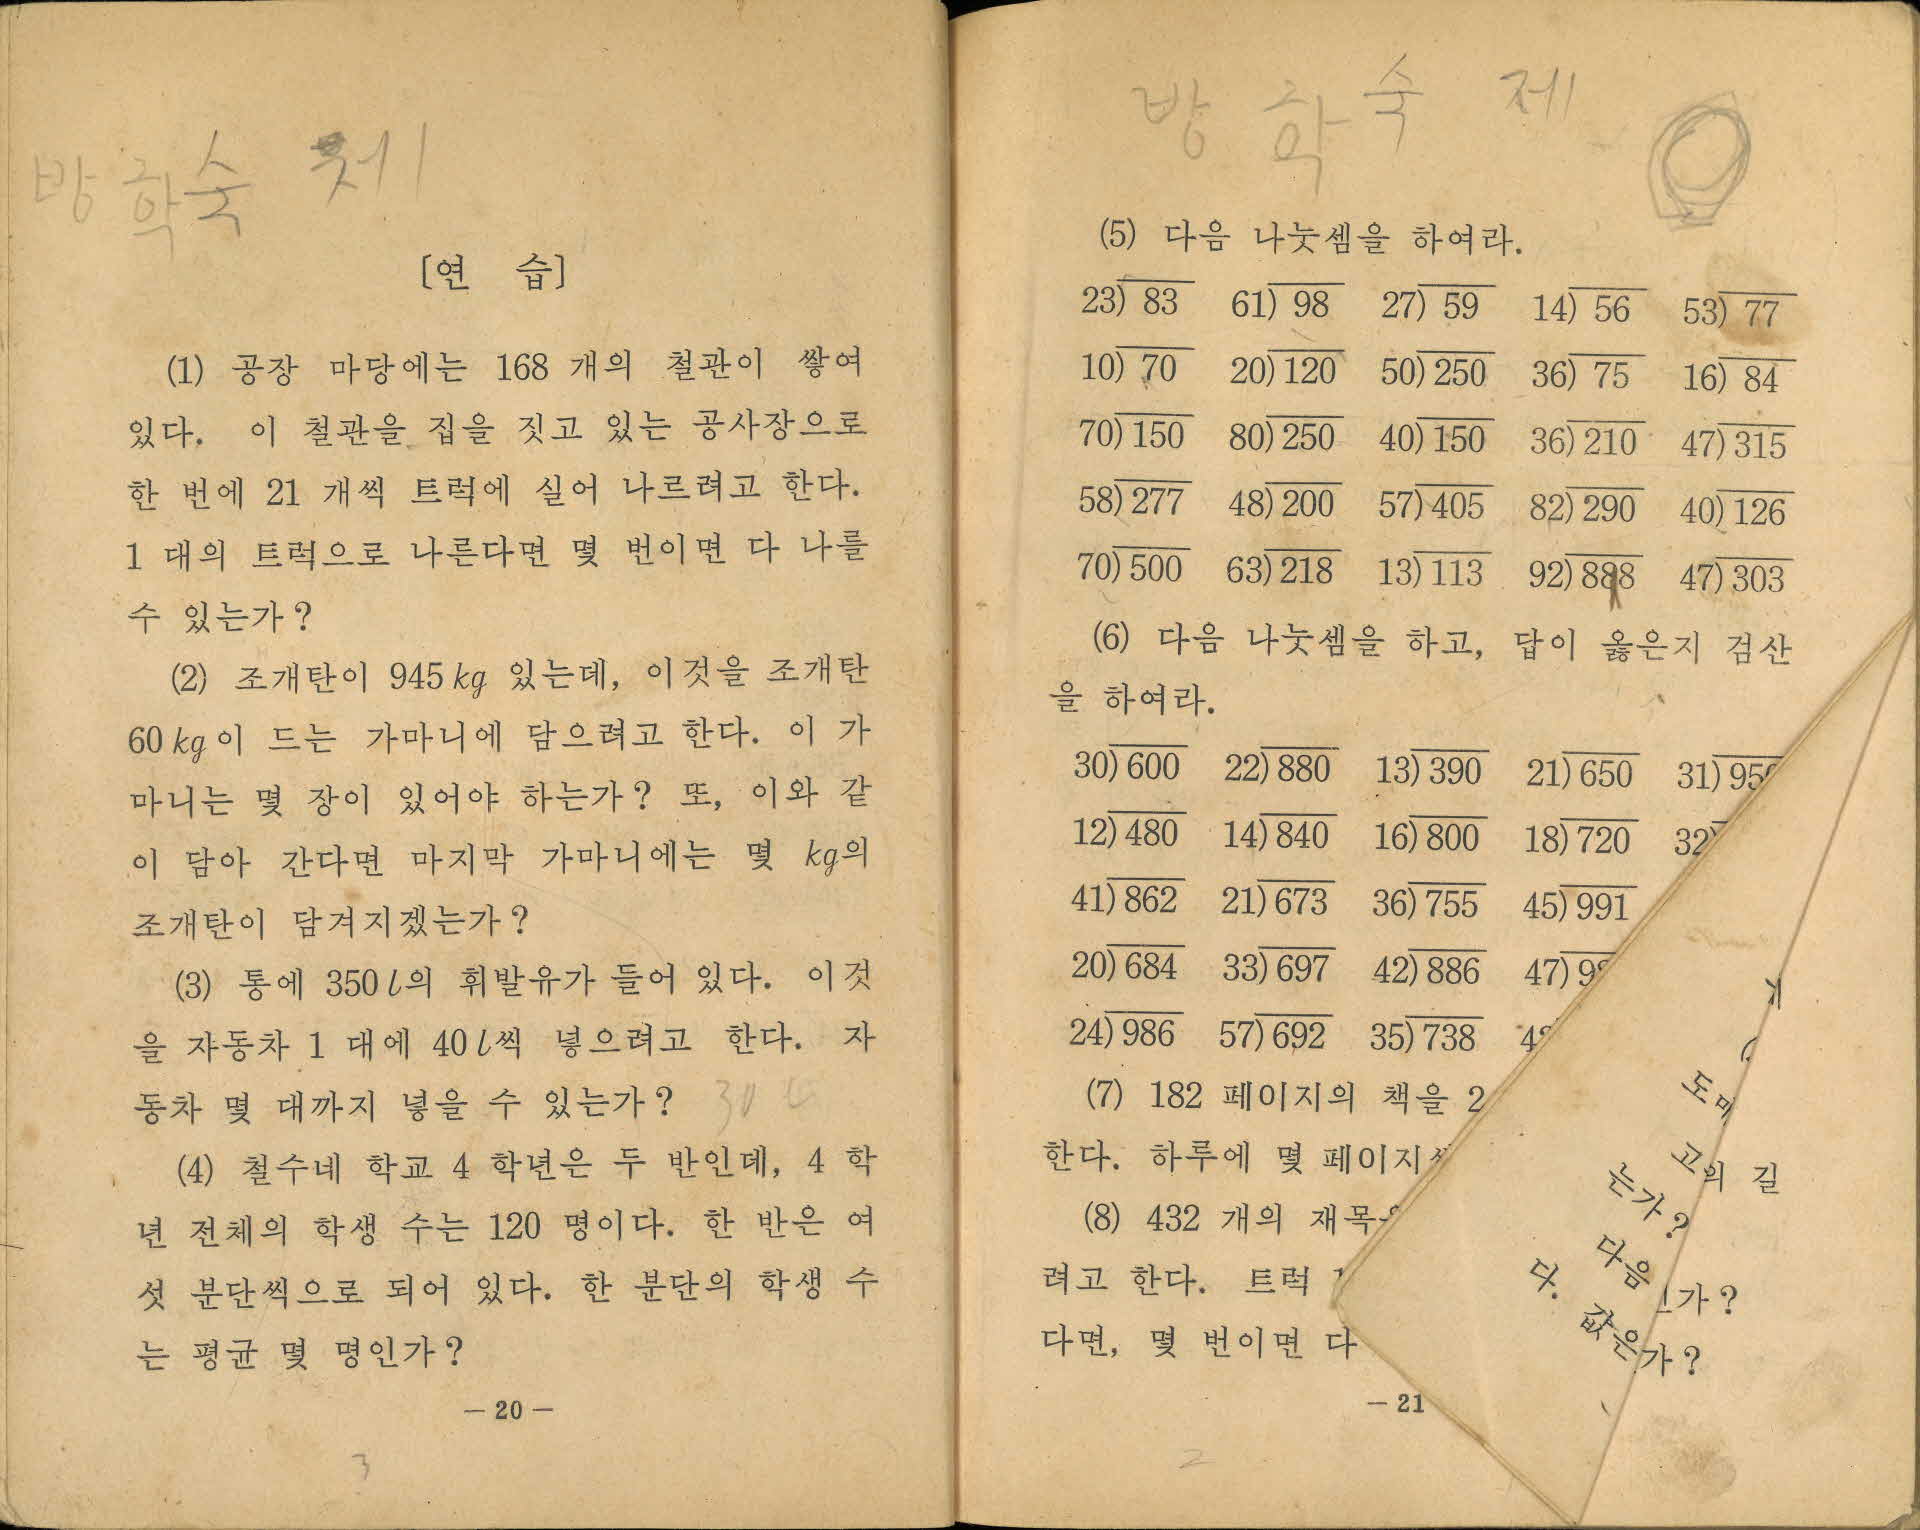 방학숙제
[연 습]
(1) 공장 마당에는 168 개의 철관이 쌓여
있다. 이 철관을 집을 짓고 있는 공사장으로
한 번에 21 개씩 트럭에 실어 나르려고 한다.
1 대의 트럭으로 나른다면 몇 번이면 다 나를
수 있는가?
(2) 조개탄이 945 kg 있는데, 이것을 조개탄
60 kg이 드는 가마니에 담으려고 한다. 이 가
마니는 몇 장이 있어야 하는가? 또, 이와 같
이 담아 간다면 마지막 가마니에는 몇 kg의
조개탄이 담겨지겠는가?
(3) 통에 350 l의 휘발유가 들어 있다. 이것
을 자동차 1 대에 40 l씩 넣으려고 한다. 자
동차 몇 대까지 넣을 수 있는가?
(4) 철수네 학교 4 학년은 두 반인데, 4 학
년 전체의 학생 수는 120 명이다. 한 반은 여
섯 분단씩으로 되어 있다. 한 분단의 학생 수
는 평균 몇 명인가?
— 20 —
3
방학숙제
(5) 다음 나눗셈을 하여라.
23) 83 61) 98 27) 59 14) 56 53) 77
10) 70 20)120 50)250 36) 75 16) 84
70)150 80)250 40)150 36)210 47)315
58)277 48)200 57)405 82)290 40)126
70)500 63)218 13)113 92)888 47)303
(6) 다음 나눗셈을 하고, 답이 옳은지 검산
을 하여라.
30)600 22)880 13)390 21)650 31)
12)480 14)840 16)800 18)720 32)
41)862 21)673 36)755 45)991
20)684 33)697 42)886 47)
24)986 57)692 35)738
(7) 182 페이지의 책을 2
한다. 하루에 몇 페이지
(8) 432 개의 재목
려고 한다. 트럭
다면, 몇 번이면 다
— 21
2
도
고
는가?
다음
다.
값은
의 길
가?
가?